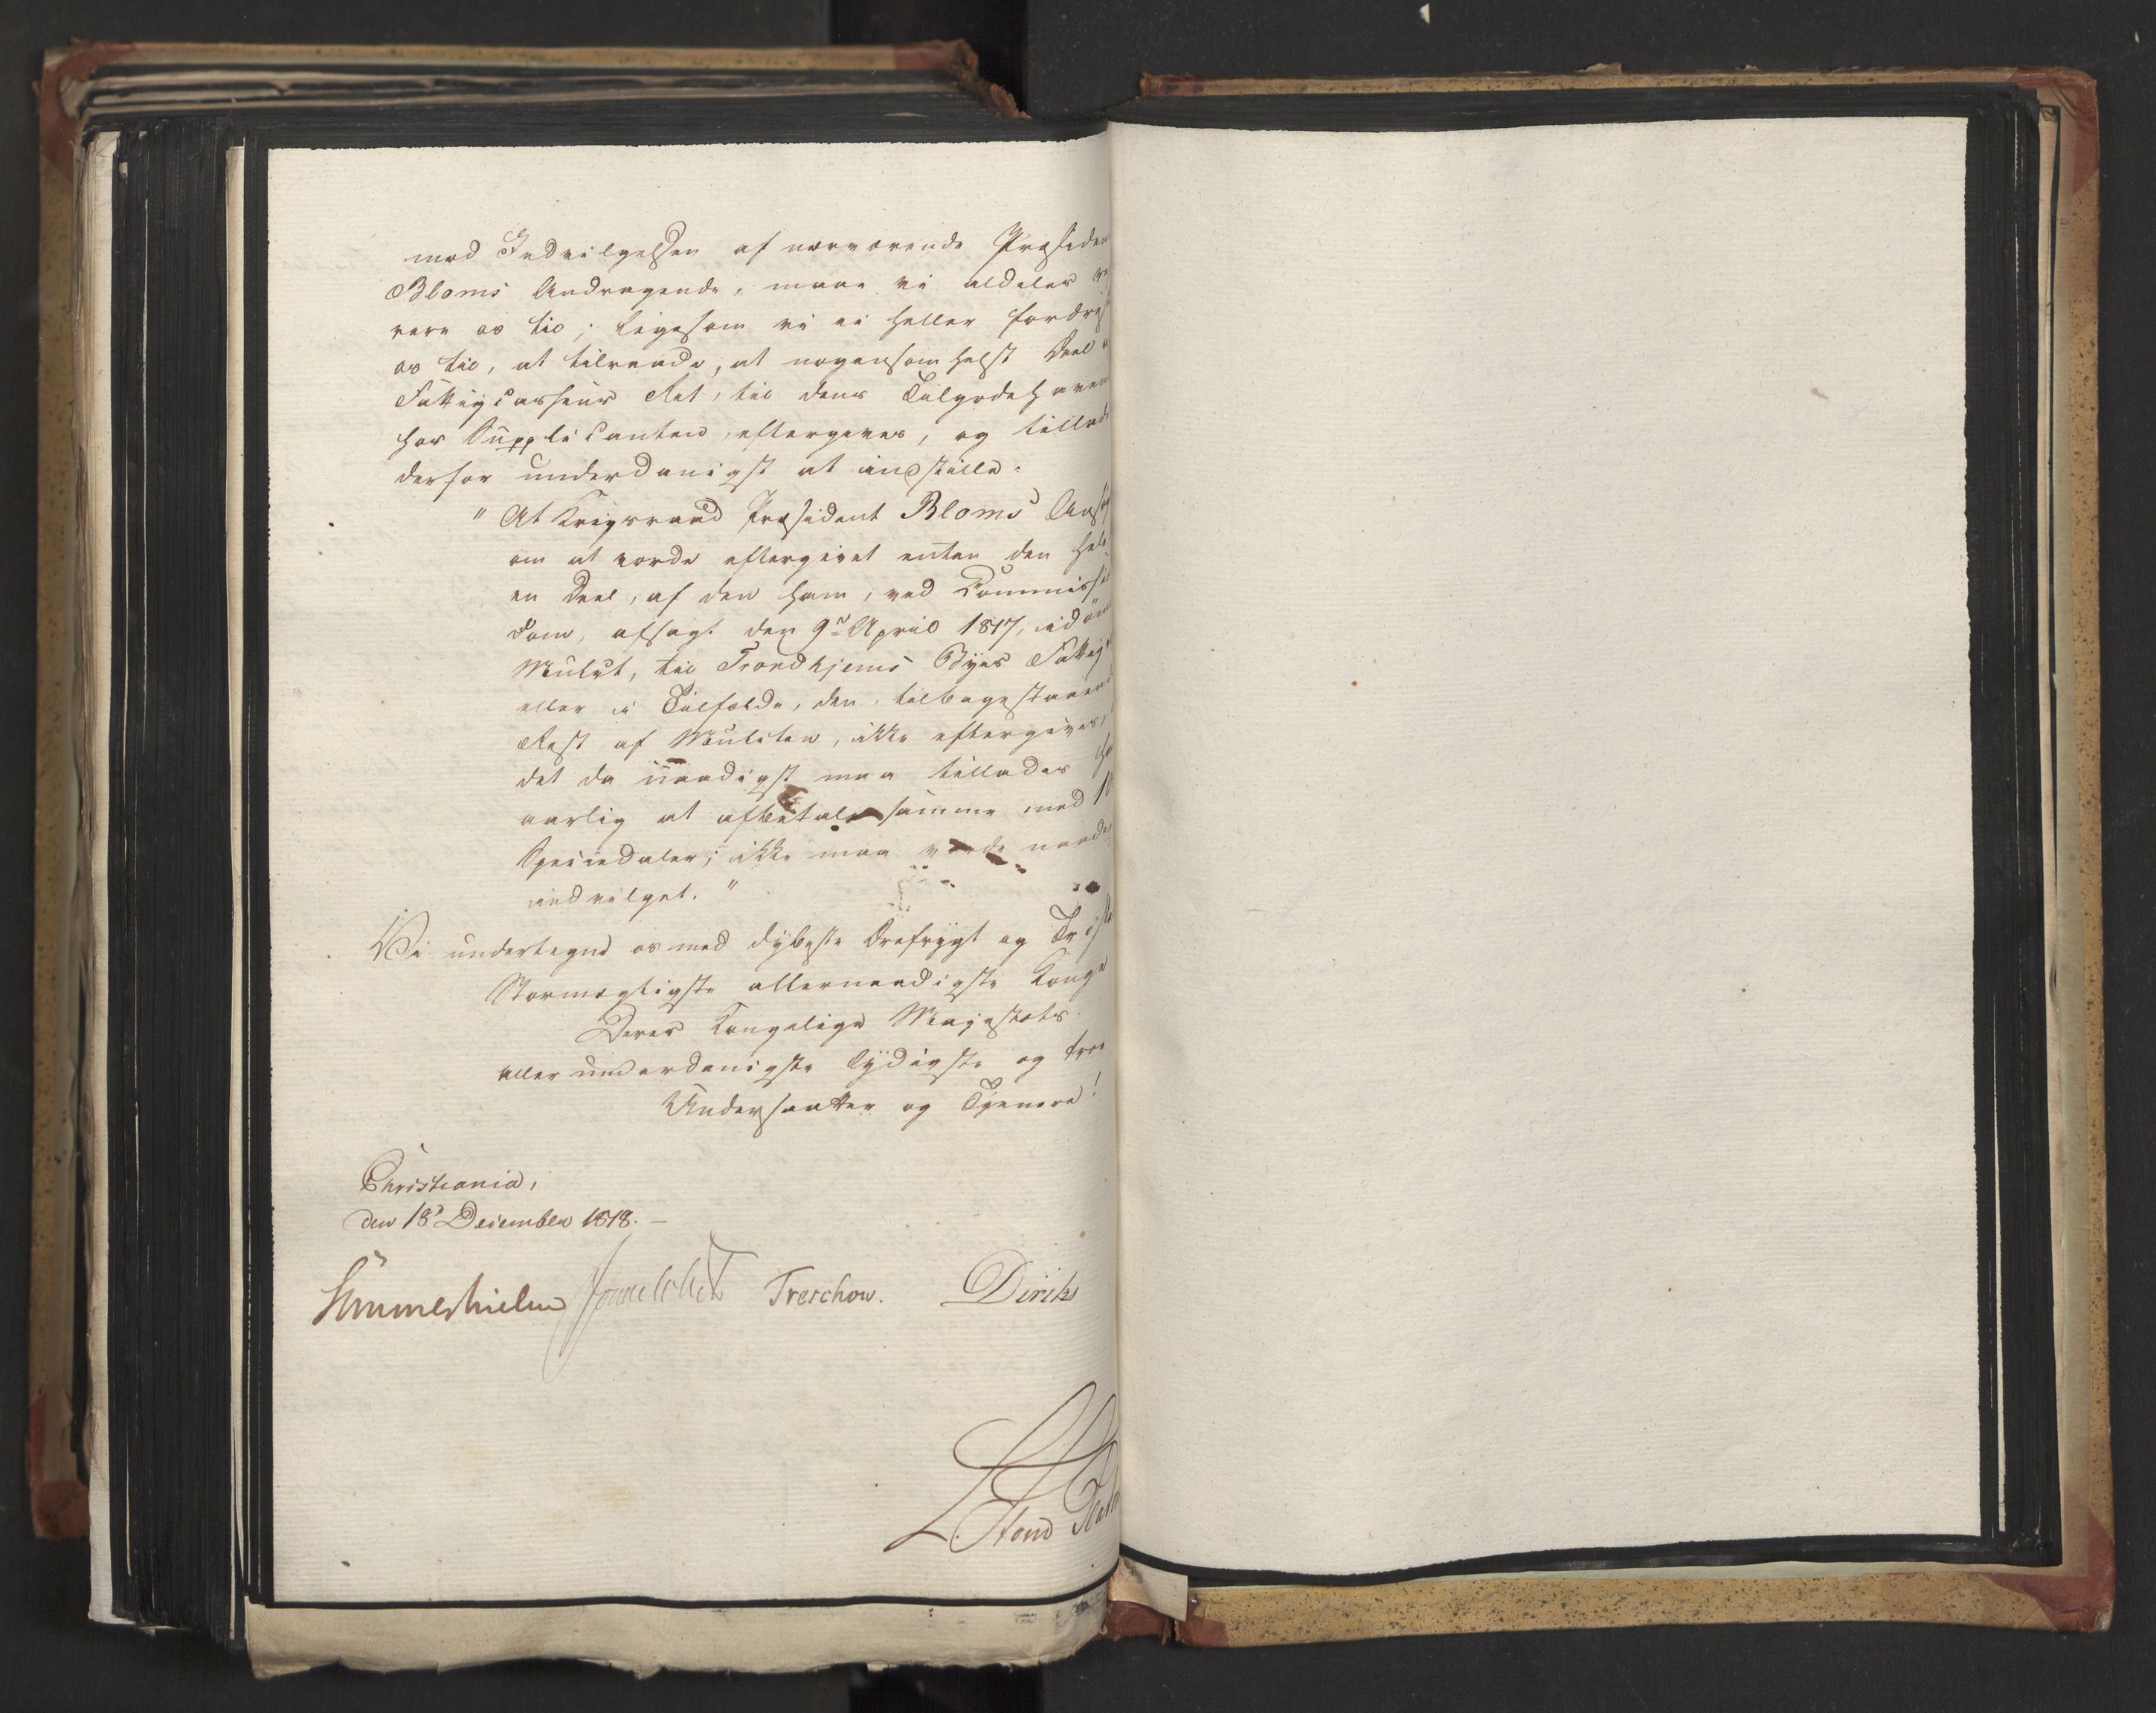 mod Indvilgelsen af nærværende Præsiden
Bloms Andragende, maae vi aldeles
være os til; ligesom vi ei heller fordrist
os til, at tilraade, at nogensomhelst Deel a
Fattigcassens Ret, til dens Tilgodehaven
hos Supplicanten, eftergives, og tillad
derfor underdanigst at indstille:
"At Krigsraad Præsident Bloms Ansøg
om at vorde eftergivet enten den hele
en Deel, af den ham, ved Commissi
Dom, afsagt den 9de April 1817, idøm
Mulct, til Trondhjems Byes Fattig
eller i Tilfælde, den tilbagestaaend
Rest af Mulcten, ikke eftergives,
det da naadigst maa tillades ha
aarlig at afbetale samme med 10
Speciedaler; ikke maa vorde naadi
indvilget."
Vi undertegne os med dybeste Ærefrygt og
Stormægtigste allernaadigste Konge
Deres Kongelige Majestæts
allerunderdanigste lydigste og troe
Undersaatter og Tjenere!
Christiania,
den 18d December 1818. —
Sommerhielm Treschow. Diriks